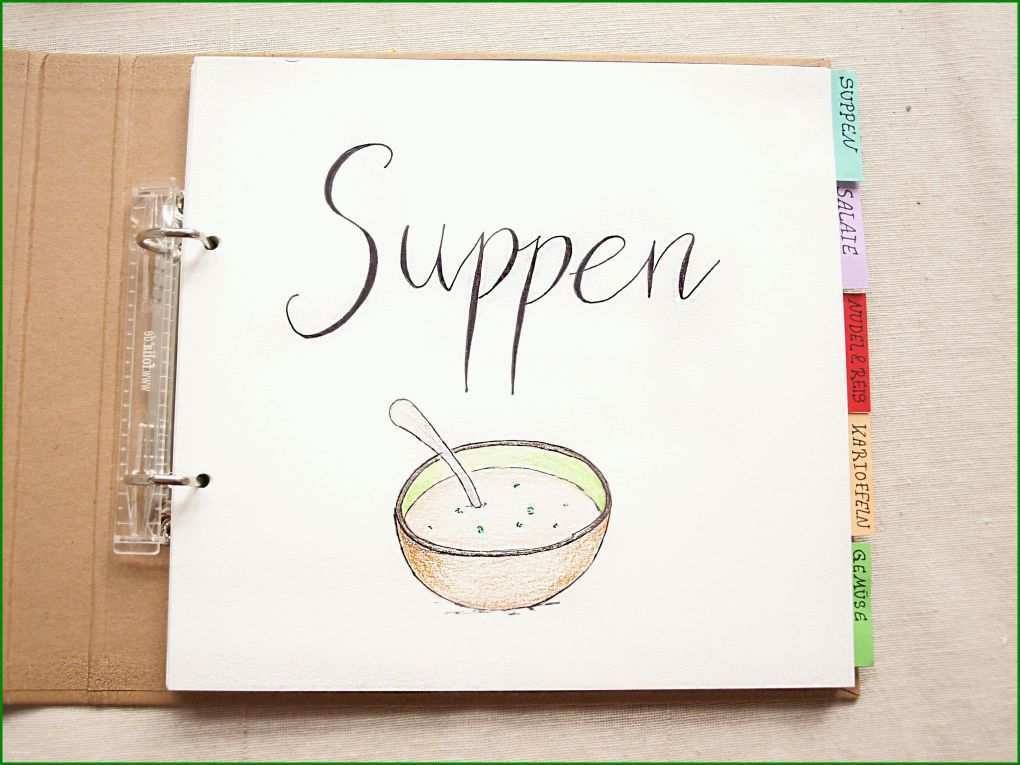 Suppen
SUPPEN
SALATE
NUDEL & REIS
KARTOFFELN
GEMÜSE